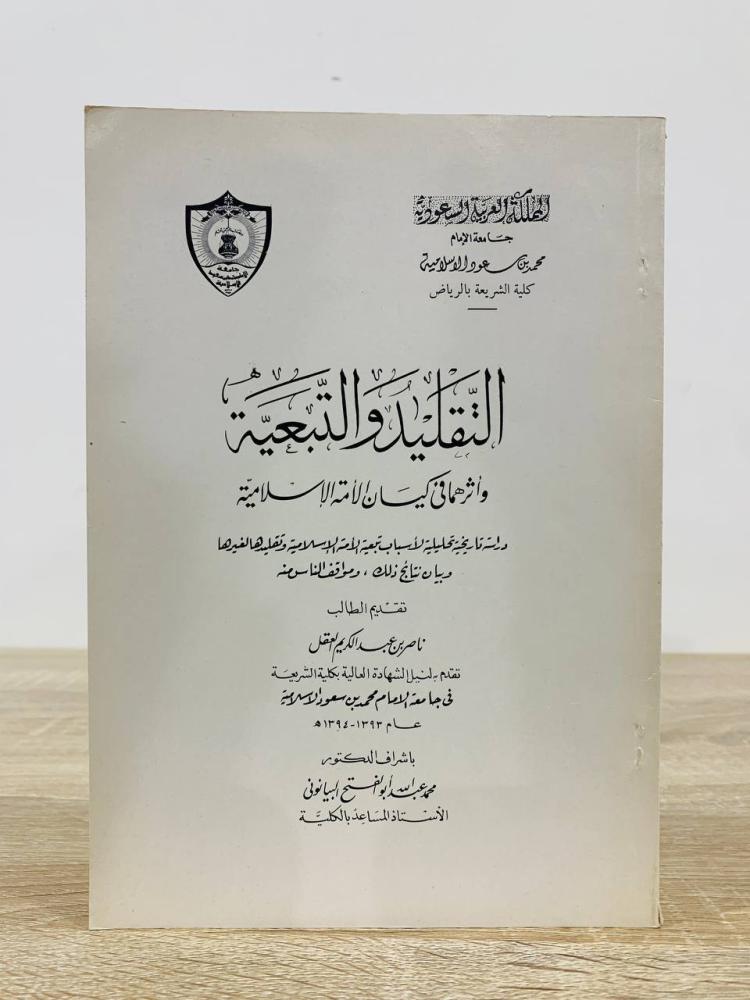 المملكة العربية السعودية
جامعة الإمام
محمد بن سعود الإسلامية
كلية الشريعة بالرياض
التقليد والتبعية
وأثرهما في كيان الأمة الإسلامية
دراسة تاريخية تحليلية لأسباب تبعية الأمة الإسلامية وتقليدها لغيرها
وبيان نتائج ذلك، ومواقف الناس منه
تقديم الطالب
ناصر بن عبد الكريم العقل
تقدم به لنيل الشهادة العالية بكلية الشريعة
في جامعة الإمام محمد بن سعود الإسلامية
عام ١٣٩٣-١٣٩٤ه
باشراف الدكتور
محمد عبد الله أبو الفتح البيانوني
الأستاذ المساعد بالكلية